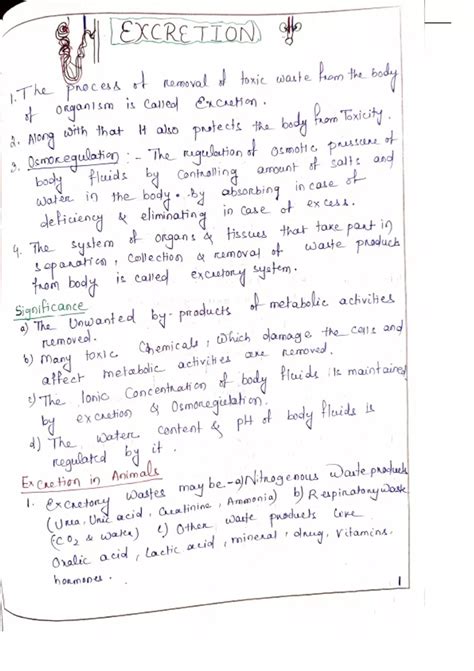 EXCRETION
1. The process of removal of toxic waste from the body
of organism is called Excretion.
2. Along with that it also protects the body from Toxicity.
3. Osmoregulation :- The regulation of Osmotic pressure of
body fluids by controlling amount of salts and
water in the body. By absorbing in case of
deficiency & eliminating in case of excess.
4. The system of organs & tissues that take part in
separation, collection & removal of waste products
from body is called excretory system.
Significance
a) The Unwanted by-products of metabolic activities
removed.
b) Many toxic chemicals, which damage the cells and
affect metabolic activities are removed.
c) The Ionic Concentration of body fluids is maintained
by excretion & Osmoregulation.
d) The water content & pH of body fluids is
regulated by it.
Excretion in Animals
1. Excretory Wastes may be - a) Nitrogenous Waste products
(Urea, Uric acid, Creatinine, Ammonia) b) Respiratory Waste
(CO2 & water) c) Other waste products like
Oxalic acid, Lactic acid, mineral, drug, vitamins,
hormones.
1